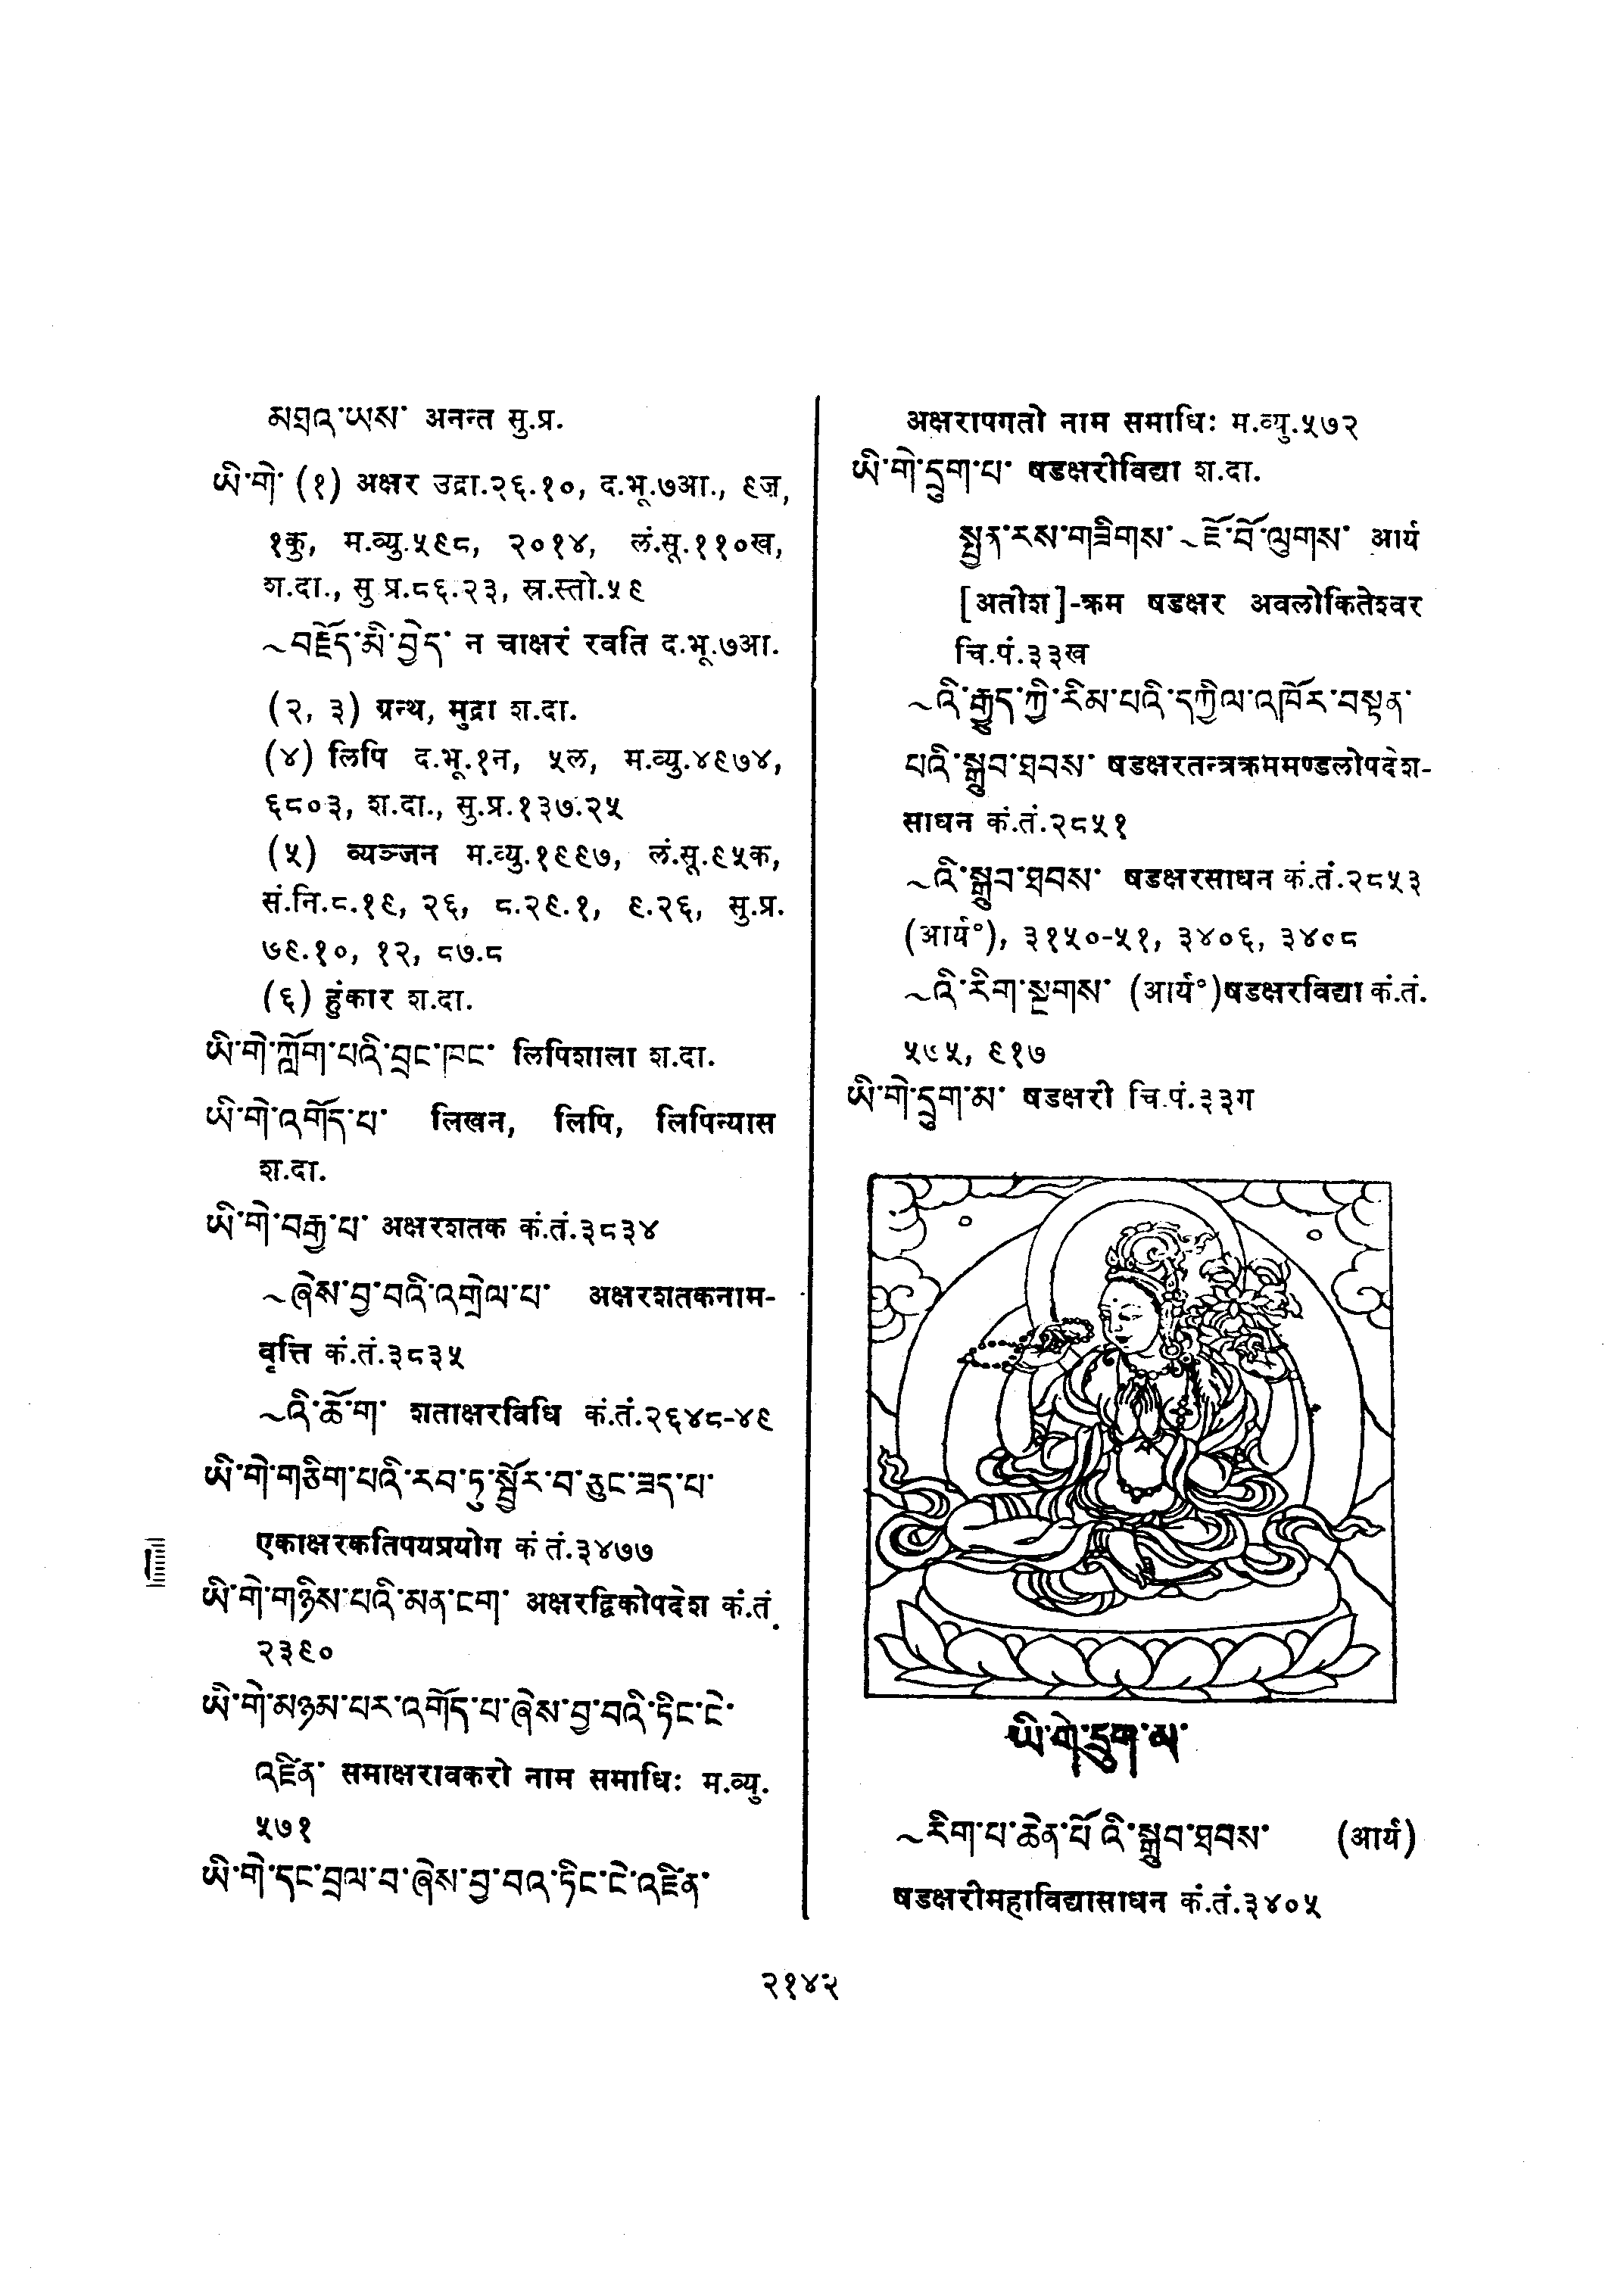 མཐའ་ཡས་ अनन्त सु.प्र.
ཡི་གེ་ (१) अक्षर उद्रा.२६.१०, द.भू.७आ., ९ज,
१कु, म.व्यु.५९८, २०१४, लं.सू.११०ख,
श.दा., सु प्र.८६.२३, स्र.स्तो.५९
~བརྗོད་མི་བྱེད་ न चाक्षरं रवति द.भू.७आ.
(२, ३) ग्रन्थ, मुद्रा श.दा.
(४) लिपि द.भू.१न, ५ल, म.व्यु.४९७४,
६८०३, श.दा., सु.प्र.१३७.२५
(५) व्यञ्जन म.व्यु.१९९७, लं.सू.९५क,
सं.नि.८.१९, २६, ८.२९.१, ९.२६, सु.प्र.
७९.१०, १२, ८७.८
(६) हुंकार श.दा.
ཡི་གེ་ཀློག་པའི་བྲང་ཁང་ लिपिशाला श.दा.
ཡི་གེ་འགོད་པ་ लिखन, लिपि, लिपिन्यास
श.दा.
ཡི་གེ་བརྒྱ་པ་ अक्षरशतक कं.तं.३८३४
~ཞེས་བྱ་བའི་འགྲེལ་པ་ अक्षरशतकनाम-
वृत्ति कं.तं.३८३५
~འི་ཆོ་ག་ शताक्षरविधि कं.तं.२६४८-४९
ཡི་གེ་གཅིག་པའི་རབ་ཏུ་སྦྱོར་བ་ཅུང་ཟད་པ་
एकाक्षरकतिपयप्रयोग कं तं.३४७७
ཡི་གེ་གཉིས་པའི་མན་ངག་ अक्षरद्विकोपदेश कं.तं.
२३९०
ཡི་གེ་མཉམ་པར་འགོད་པ་ཞེས་བྱ་བའི་ཏིང་ངེ་
འཛིན་ समाक्षरावकरो नाम समाधिः म.व्यु.
५७१
ཡི་གེ་དང་བྲལ་བ་ཞེས་བྱ་བའ་ཏིང་ངེ་འཛིན་
अक्षरापगतो नाम समाधिः म.व्यु.५७२
ཡི་གེ་དྲུག་པ་ षडक्षरीविद्या श.दा.
སྤྱན་རས་གཟིགས་~ཇོ་བོ་ལུགས་ आर्य
[अतीश]-क्रम षडक्षर अवलोकितेश्वर
चि.पं.३३ख
~འི་རྒྱུད་ཀྱི་རིམ་པའི་དཀྱིལ་འཁོར་བསྟན་
པའི་སྒྲུབ་ཐབས་ षडक्षरतन्त्रक्रममण्डलोपदेश-
साधन कं.तं.२८५१
~འི་སྒྲུབ་ཐབས་ षडक्षरसाधन कं.तं.२८५३
(आर्य°), ३१५०-५१, ३४०६, ३४०८
~འི་རིག་སྔགས་ (आर्य°)षडक्षरविद्या कं.तं.
५९५, ९१७
ཡི་གེ་དྲུག་མ་ षडक्षरी चि.पं.३३ग
ཡི་གེ་དྲུག་མ་
~རིག་པ་ཆེན་པོ་འི་སྒྲུབ་ཐབས་ (आर्य)
षडक्षरीमहाविद्यासाधन कं.तं.३४०५
२१४२